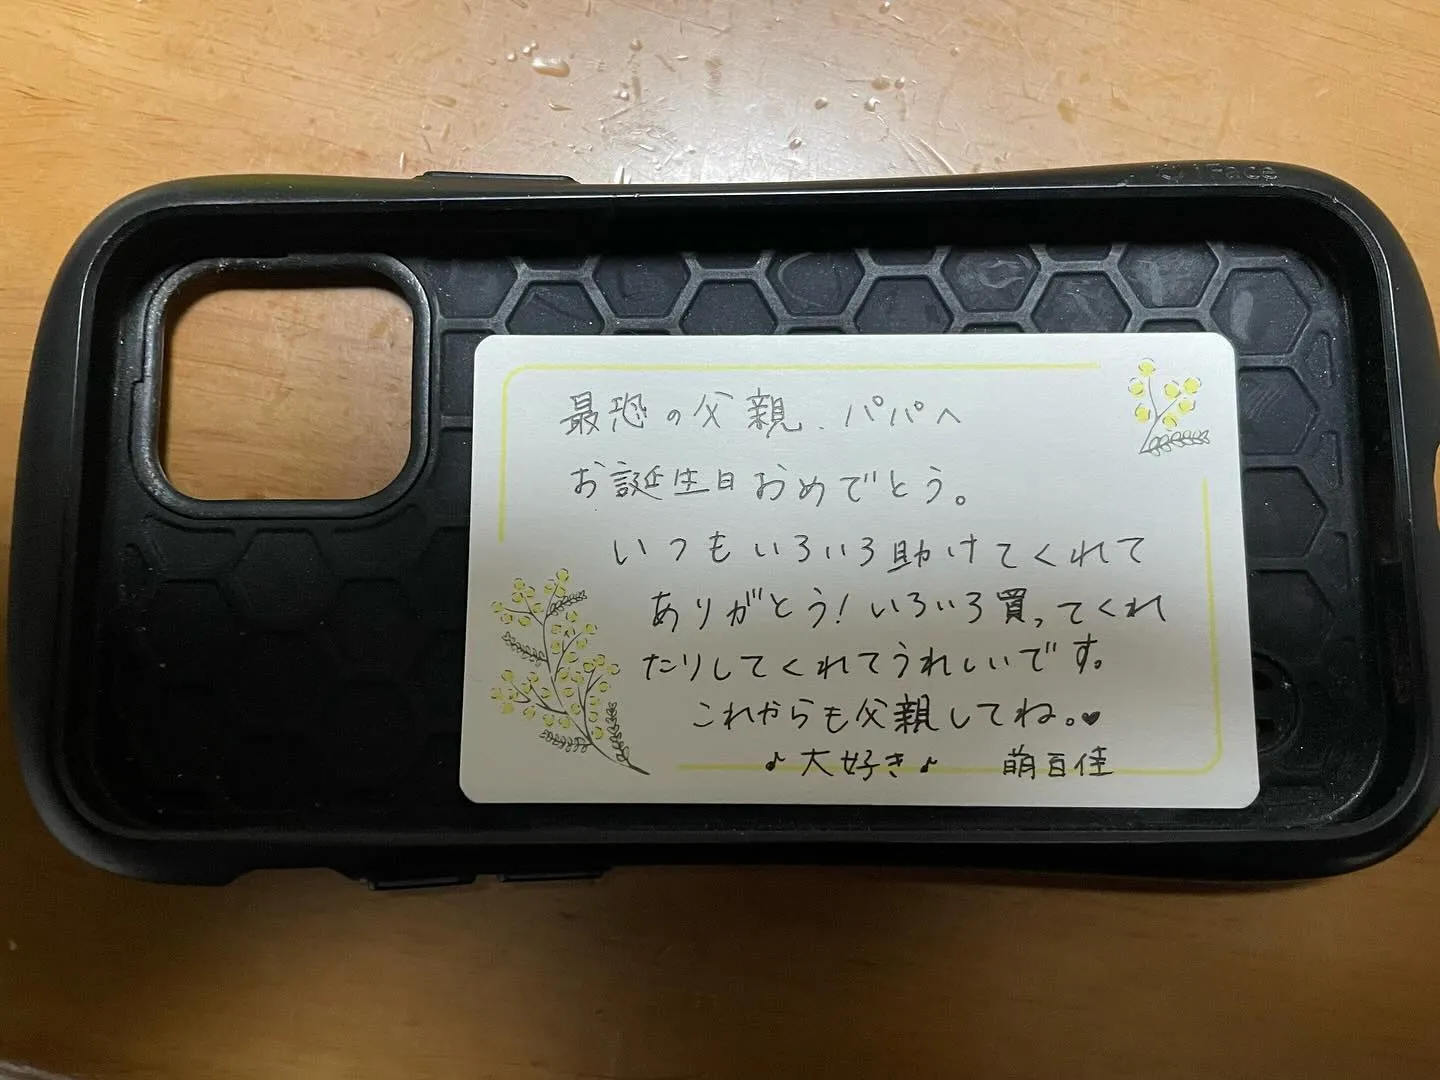 iFace
最恐の父親、パパへ
お誕生日おめでとう。
いつもいろいろ助けてくれて
ありがとう！いろいろ買ってくれ
たりしてくれてうれしいです。
これからも父親してね。♥
♪大好き♪ 萌百佳